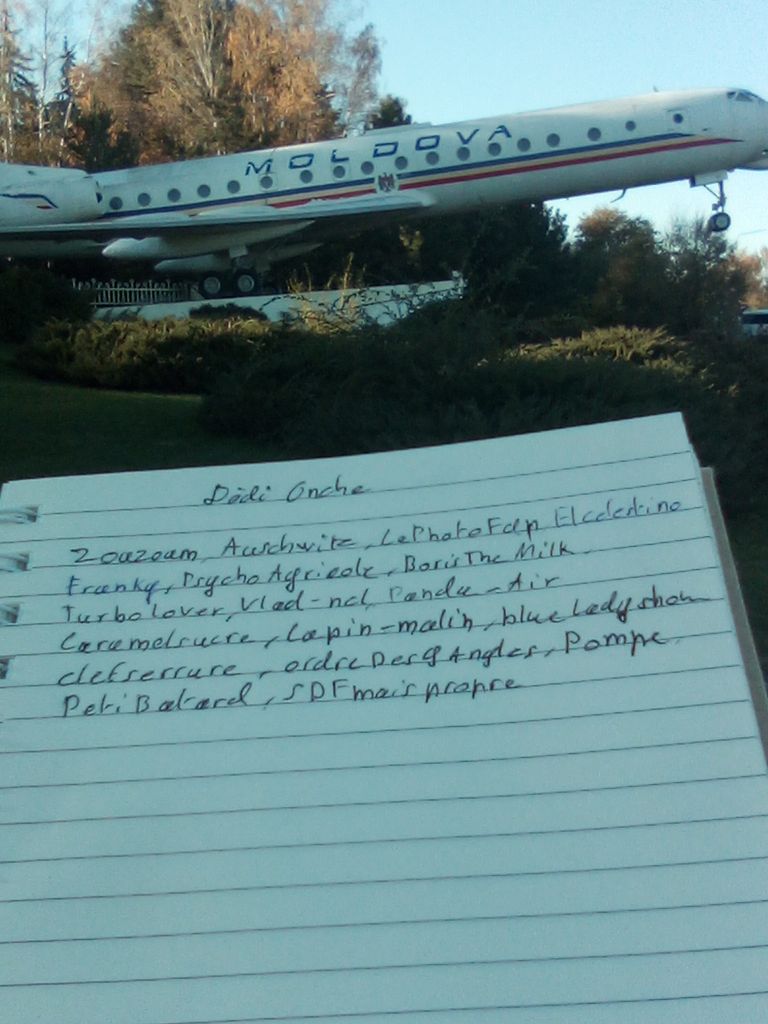 MOLDOVA
Dédi Onche
Zouzoum, Auschwitz, LePhotoFdp Elcelestino
Franky, PsychoAgricole, BorisTheMilk
Turbolover, Vlad-ncl, Panda-Air
Caramelsucre, lapin-malin, blueladyshow
clefserrure, ordreDes9Angles, Pompe
PetiBatard, SDFmaispropre